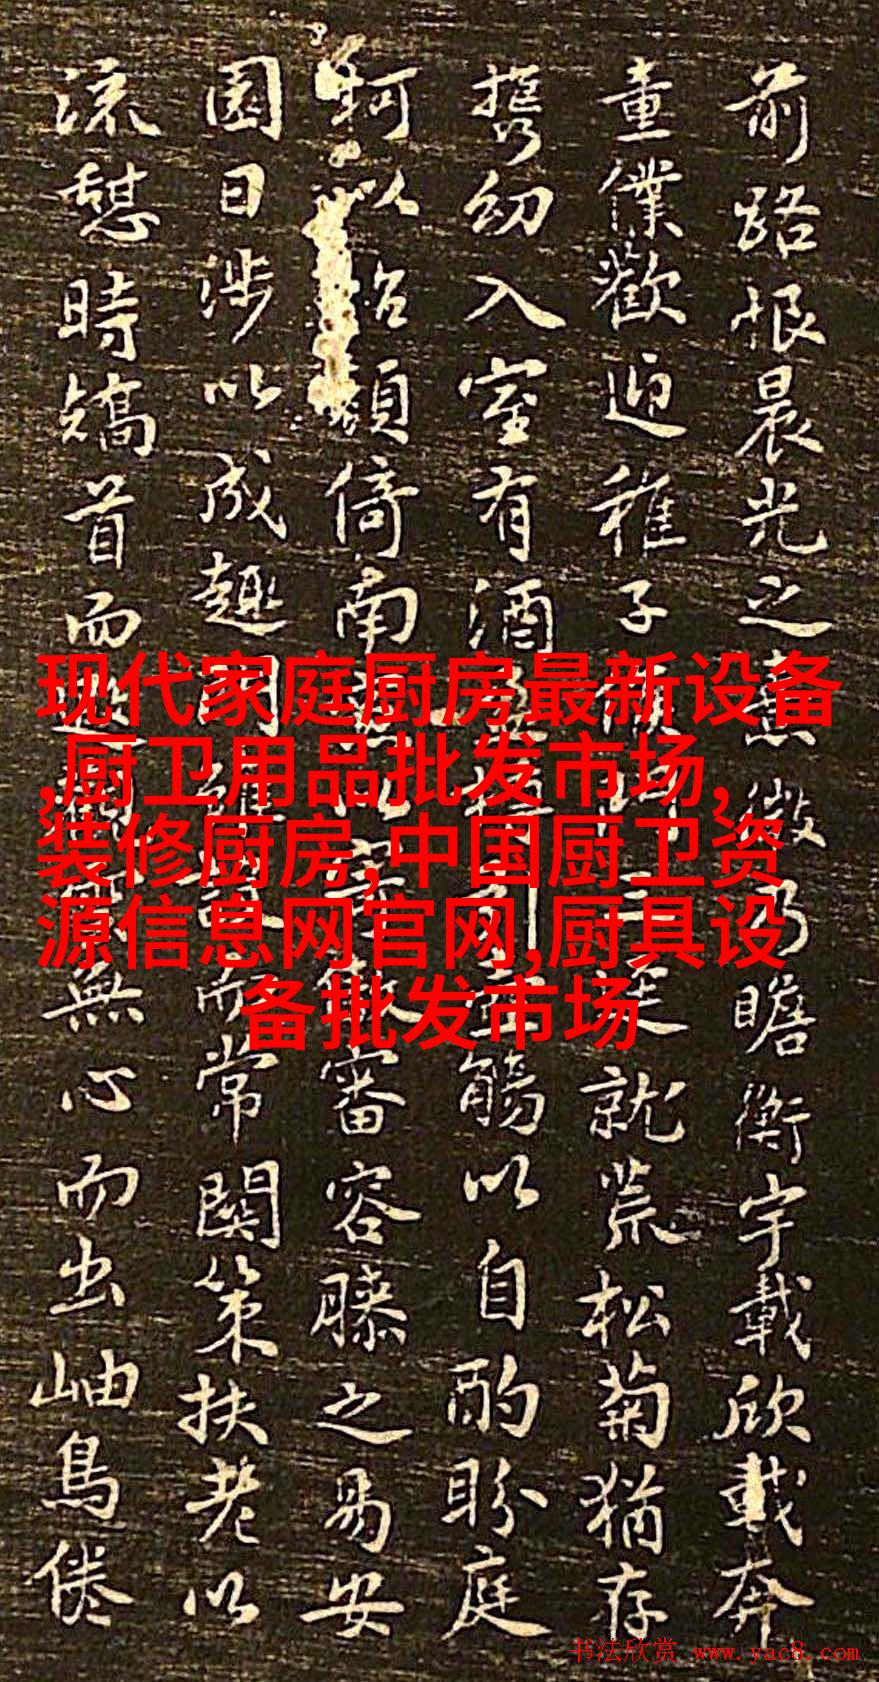 前路恨晨光之熹微乃瞻衡宇載欣載奔
童僕歡迎稚子候門三徑就荒松菊猶存
携幼入室有酒引觴以自酌盼庭
柯以怡顏倚南以審容膝之易安
園日涉以成趣門雖而常關策扶老以
流憩時矯首而無心而出岫鳥倦
现代家庭厨房最新设备
,厨卫用品批发市场,
装修厨房,中国厨卫资
源信息网官网,厨具设
备批发市场
书法欣赏 www.yac8.com